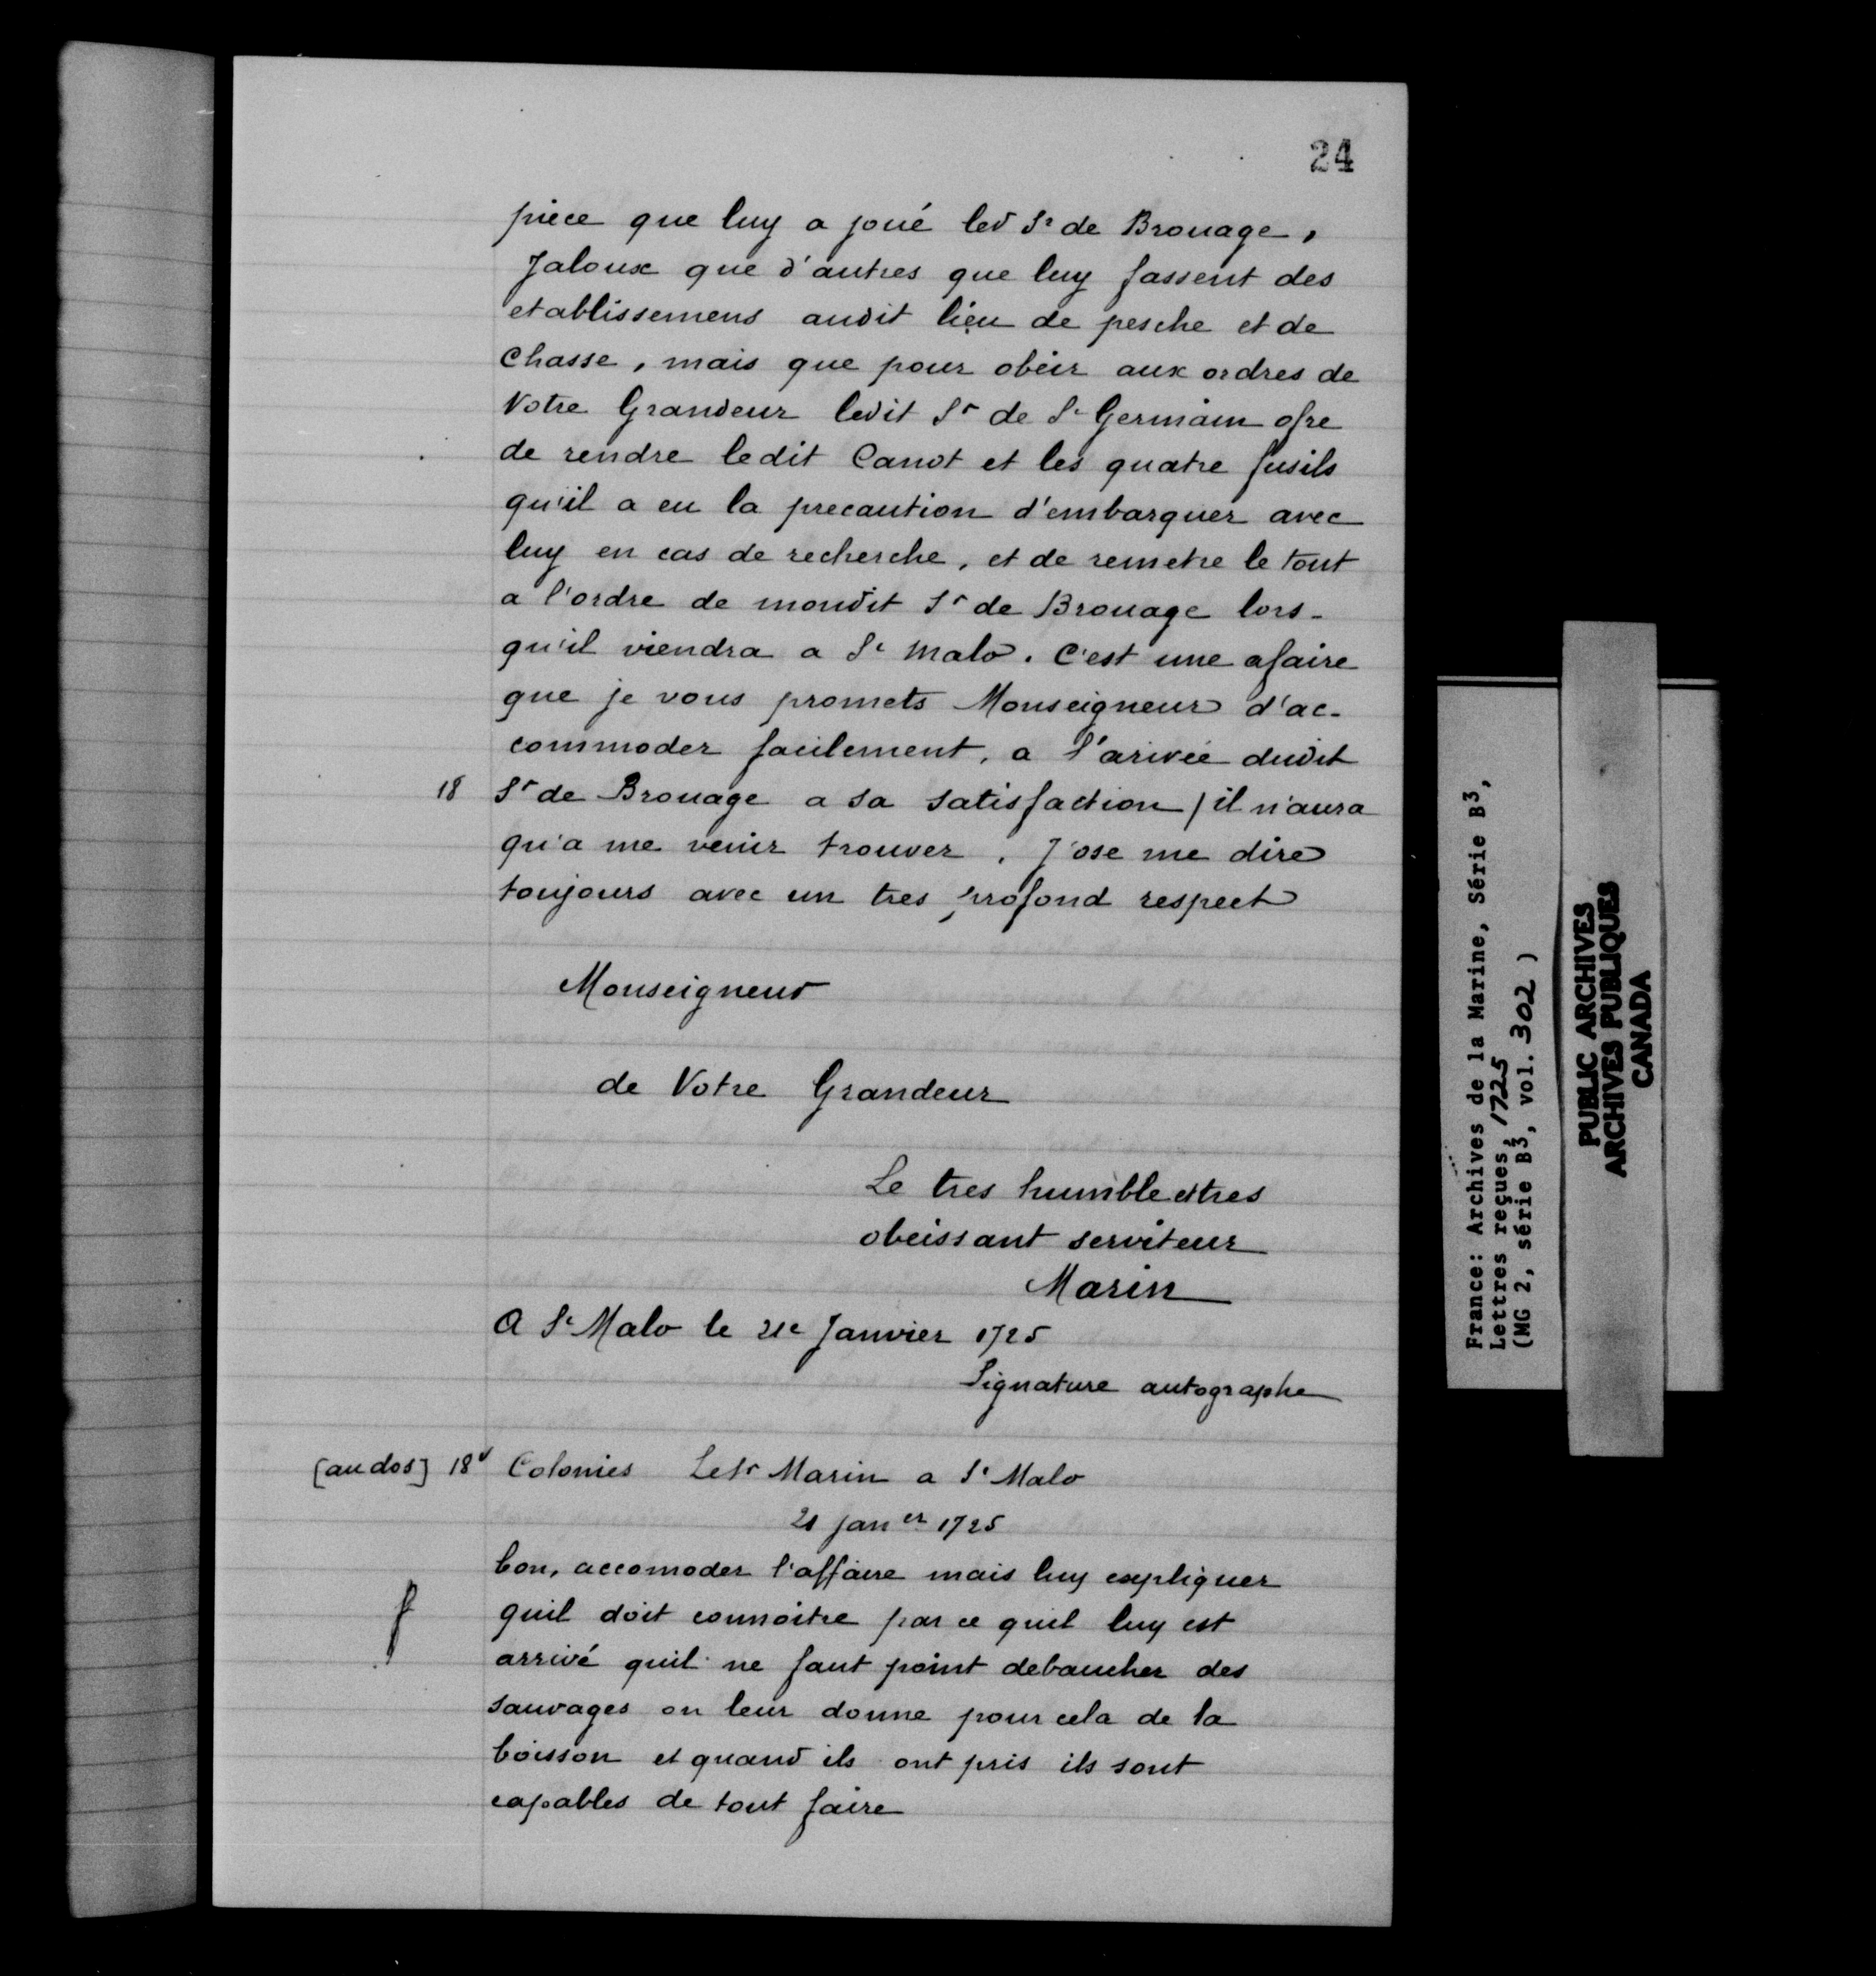 24
piece que luy a joué led Sr de Brouage,
Jaloux que d'autres que luy fassent des
etablissemens audit lieu de pesche et de
Chasse, mais que pour obeir aux ordres de
Votre Grandeur ledit Sr de St Germain ofre
de rendre ledit Canot et les quatre fusils
qu'il a eu la precaution d'embarquer avec
luy en cas de recherche, et de remetre le tout
a l'ordre de mondit Sr de Brouage lors-
qu'il viendra a St Malo. C'est une afaire
que je vous promets Monseigneur d'ac-
commoder facilement, a l'arivée dudit
18 Sr de Brouage a sa satisfaction / il n'aura
qu'a me venir trouver. J'ose me dire
toujours avec un tres profond respect
Monseigneur
de Votre Grandeur
Le tres humble et tres
obeissant serviteur
Marin
A St Malo le 21e Janvier 1725
Signature autographe
[au dos] 18v Colonies Le Sr Marin a St Malo
21 janer 1725
bon, accomoder l'affaire mais luy expliquer
quil doit connoitre par ce quil luy est
arrivé quil ne faut point debaucher des
sauvages on leur donne pour cela de la
boisson et quand ils ont pris ils sont
capables de tout faire
France: Archives de la Marine, Série B3,
Lettres reçues, 1725
(MG 2, série B3, vol. 302 )
PUBLIC ARCHIVES
ARCHIVES PUBLIQUES
CANADA